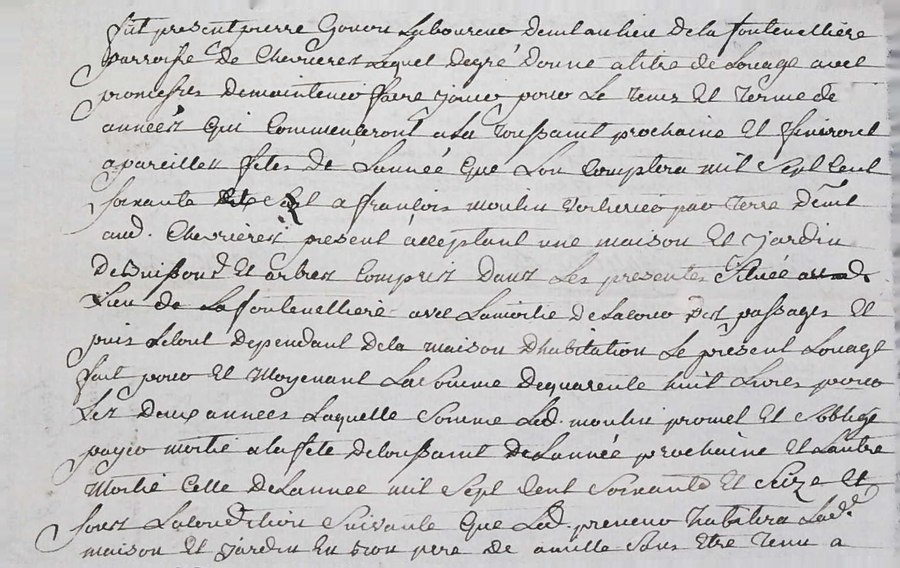 fut present pierre Gonon Laboureur demt au lieu de la fontenelliere
parroisse de Chevrieres Lequel de gré donne a titre de Louage avec
promesses de maintenir faire jouir pour Le tems Et terme de
années qui Commenceront a La toussaint prochaine Et finiront
a pareilles fetes de L'année que Lon Comptera mil Sept Cent
Soixante dix Sept a francois moulin voiturier par terre demt
aud. Chevrieres present acceptant une maison Et jardin
de buissons Et arbres Compris dans Les presentes Située au d.
Lieu de La fontenelliere avec La moitié de La cour des passages Et
puis Le tout dependant de la maison d'habitation Le present Louage
fait pour Et Moyenant La Somme de quarente huit Livres pour
Les deux années Laquelle Somme Led. moulin promet Et S'oblige
payer moitié a la fete de toussaint de L'année prochaine Et L'autre
Moitié Celle de L'annee mil Sept Cent Soixante Et Seize Et
sous La Condition Suivante que Led. preneur habitera Lad.
maison Et jardin En bon pere de amille Sans Etre tenu a